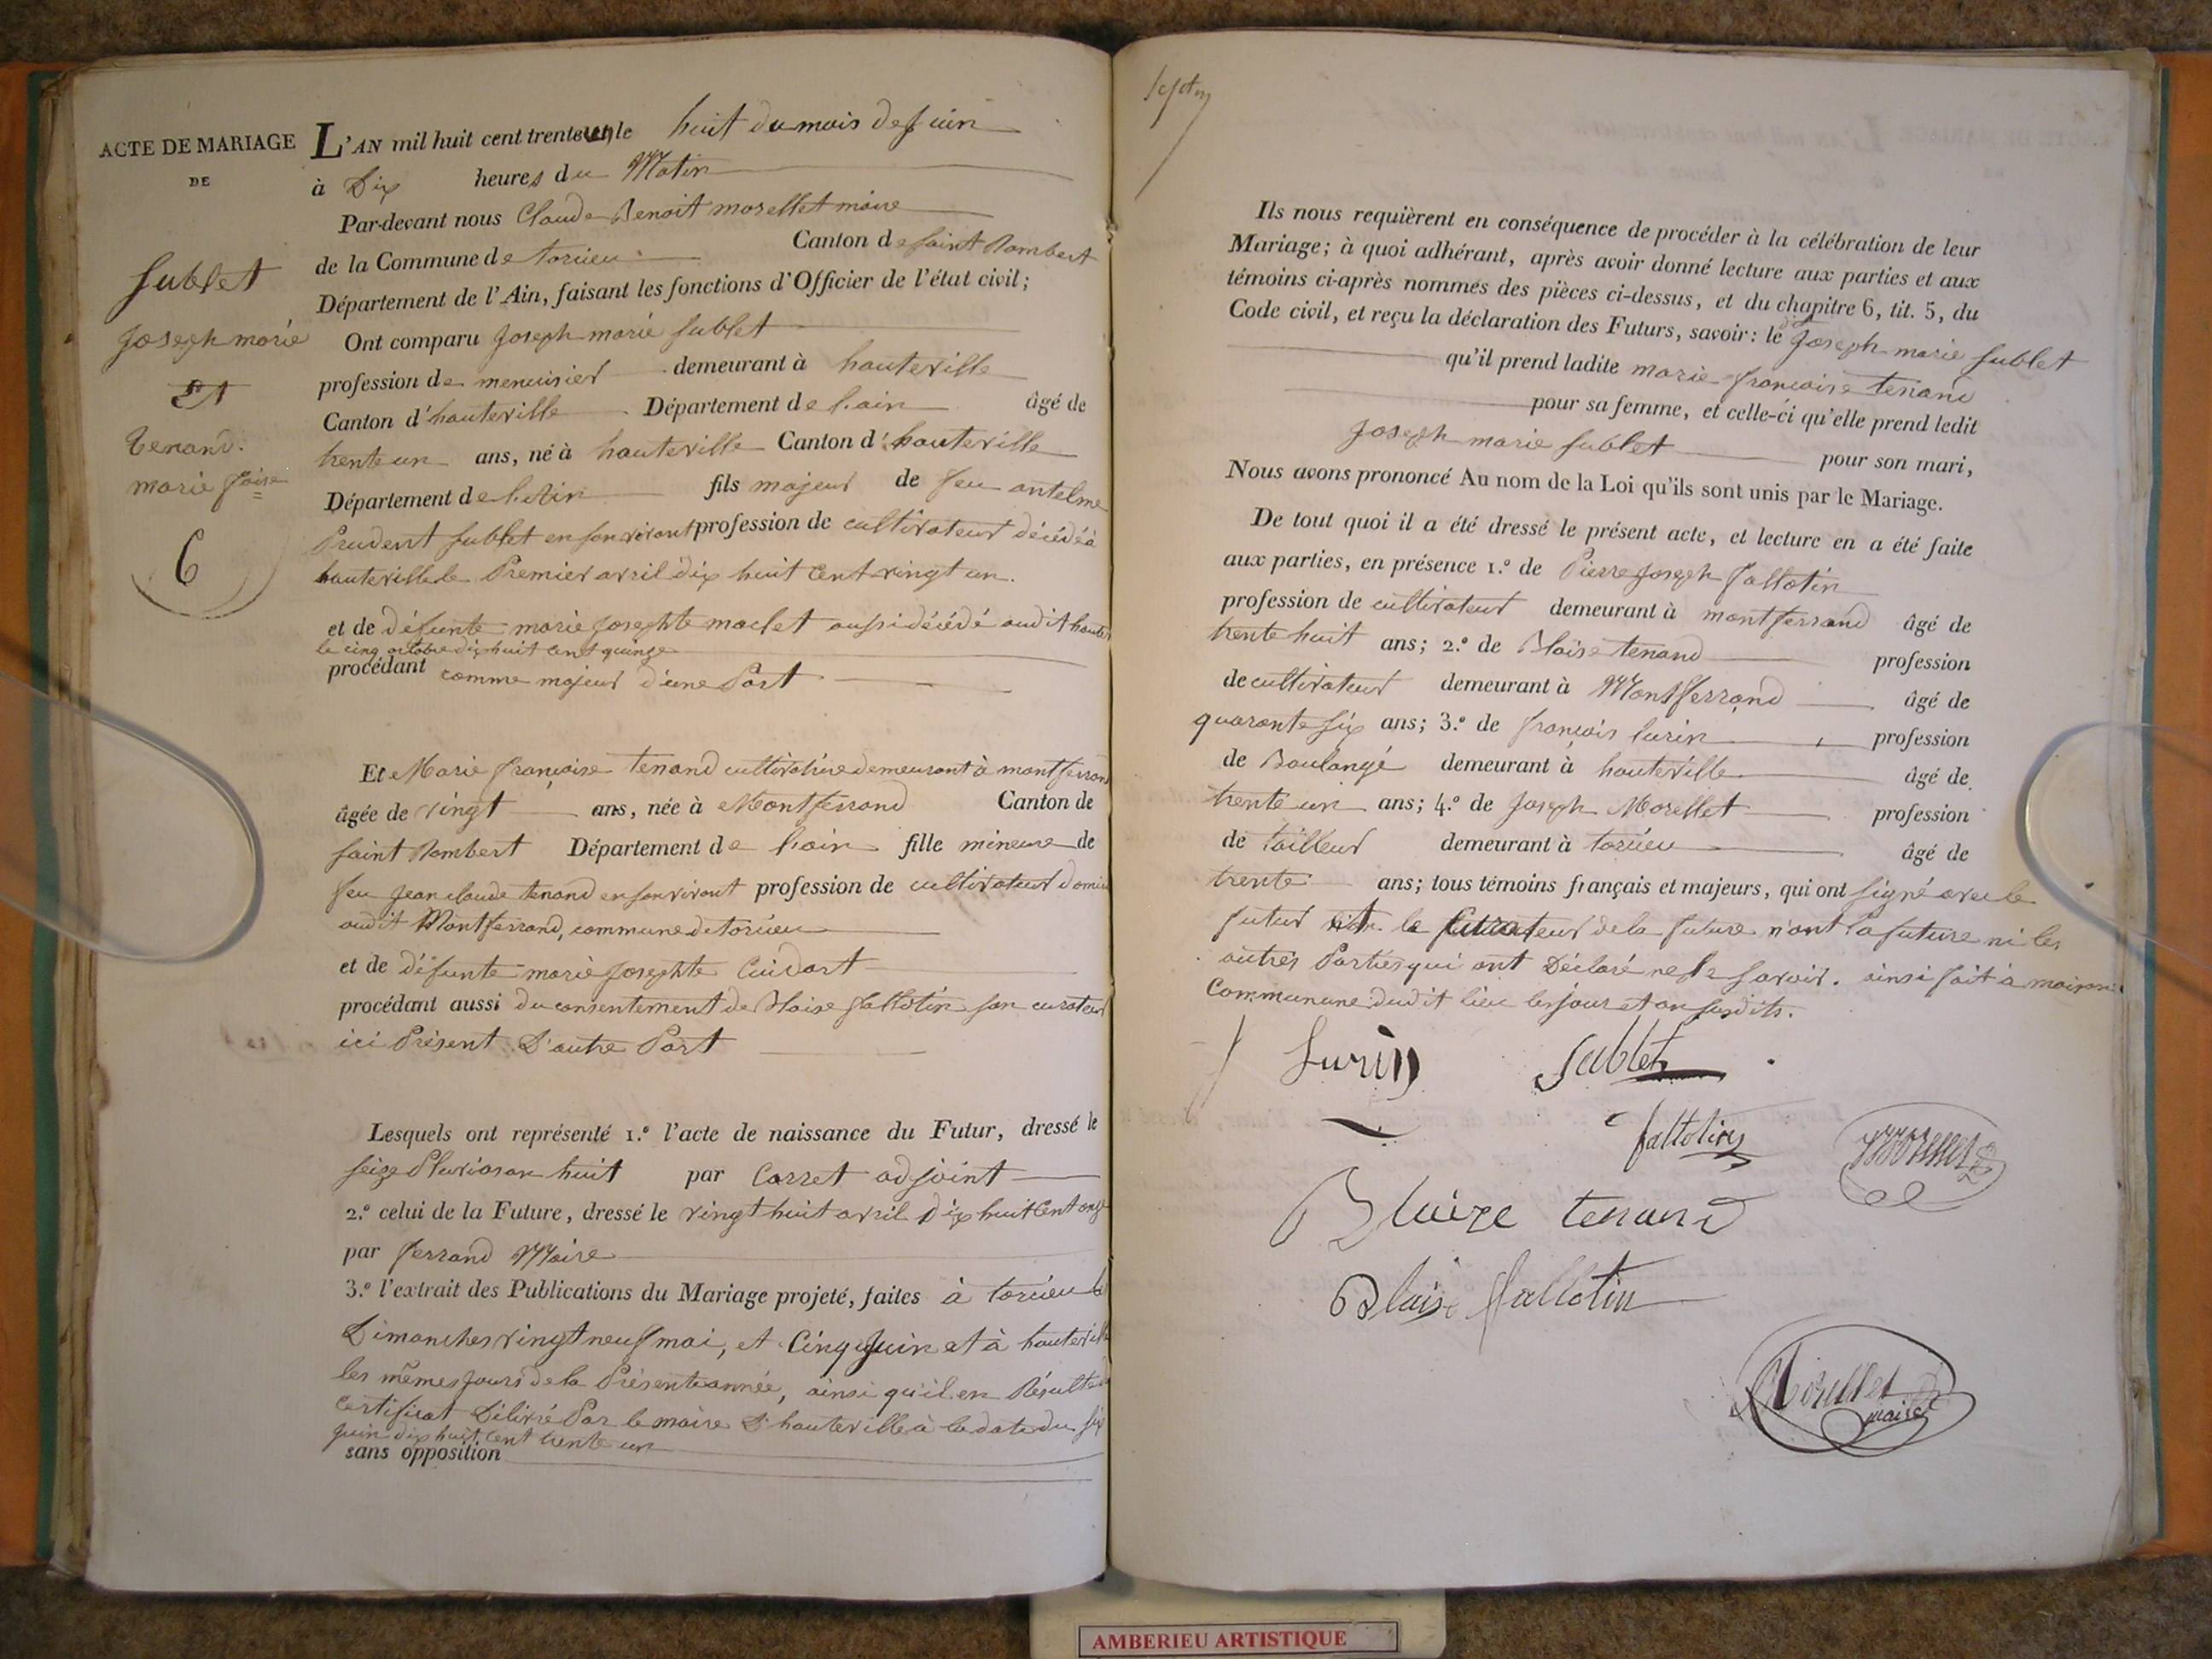 ACTE DE MARIAGE
DE
Sublet
Joseph marie
et
tenand.
marie foise
6
L'AN mil huit cent trente un le huit du mois de Juin
à Dix heures du Matin
Par-devant nous Claude Benoit morellet maire
de la Commune de torcieu Canton de saint Rambert
Département de l'Ain, faisant les fonctions d'Officier de l'état civil;
Ont comparu Joseph marie sublet
profession de menuisier demeurant à hauteville
Canton d'hauteville Département de l'ain âgé de
trente un ans, né à hauteville Canton d'hauteville
Département de l'Ain fils majeur de feu antelme
Prudent sublet en son vivant profession de cultivateur décédé à
hauteville le Premier avril dix huit cent vingt un.
et de défunte marie josephte maclet aussi décédé audit hautev
le cinq octobre dix huit cent quinze
procédant comme majeur d'une Part
Et Marie françoise tenand cultivatrice demeurant à montferrand
âgée de vingt ans, née à Montferrand Canton de
saint Rambert Département de l'ain fille mineure de
feu jean claude tenand en son vivant profession de cultivateur domici
audit Montferrand, commune de torcieu
et de défunte marie josephte Cuidart
procédant aussi du consentement de Blaise fallotin son curateur
ici Présent D'autre Part
Lesquels ont représenté 1.º l'acte de naissance du Futur, dressé le
seize Pluviose an huit par Carret adjoint
2.º celui de la Future, dressé le vingt huit avril dix huit cent onze
par ferrand Maire
3.º l'extrait des Publications du Mariage projeté, faites à torcieu les
Dimanches vingt neuf mai, et Cinq Juin et à hauteville
les mêmes jours de la Présente année, ainsi qu'il en Résulte du
certificat Délivré Par le maire d'hauteville à la date du six
juin dix huit cent trente un
sans opposition
sept
Ils nous requièrent en conséquence de procéder à la célébration de leur
Mariage; à quoi adhérant, après avoir donné lecture aux parties et aux
témoins ci-après nommés des pièces ci-dessus, et du chapitre 6, tit. 5, du
Code civil, et reçu la déclaration des Futurs, savoir: le dit Joseph marie sublet
qu'il prend ladite marie françoise tenand
pour sa femme, et celle-ci qu'elle prend ledit
joseph marie sublet pour son mari,
Nous avons prononcé Au nom de la Loi qu'ils sont unis par le Mariage.
De tout quoi il a été dressé le présent acte, et lecture en a été faite
aux parties, en présence 1.º de Pierre joseph fallotin
profession de cultivateur demeurant à montferrand âgé de
trente huit ans; 2.º de Blaise tenand profession
de cultivateur demeurant à Montferrand âgé de
quarante six ans; 3.º de françois lurin profession
de Boulangé demeurant à hauteville âgé de
trente un ans; 4.º de joseph Morellet profession
de tailleur demeurant à torcieu âgé de
trente ans; tous témoins français et majeurs, qui ont signé avec le
futur et le curateur de la future n'ont la future ni les
autres Parties qui ont Déclaré ne le savoir. ainsi fait à maison
Communune dudit lieu les jour et an susdits.
Lurin Sublet
fallotin Morellet
Blaize tenand
Blaise fallotin
Morellet
maire
AMBERIEU ARTISTIQUE